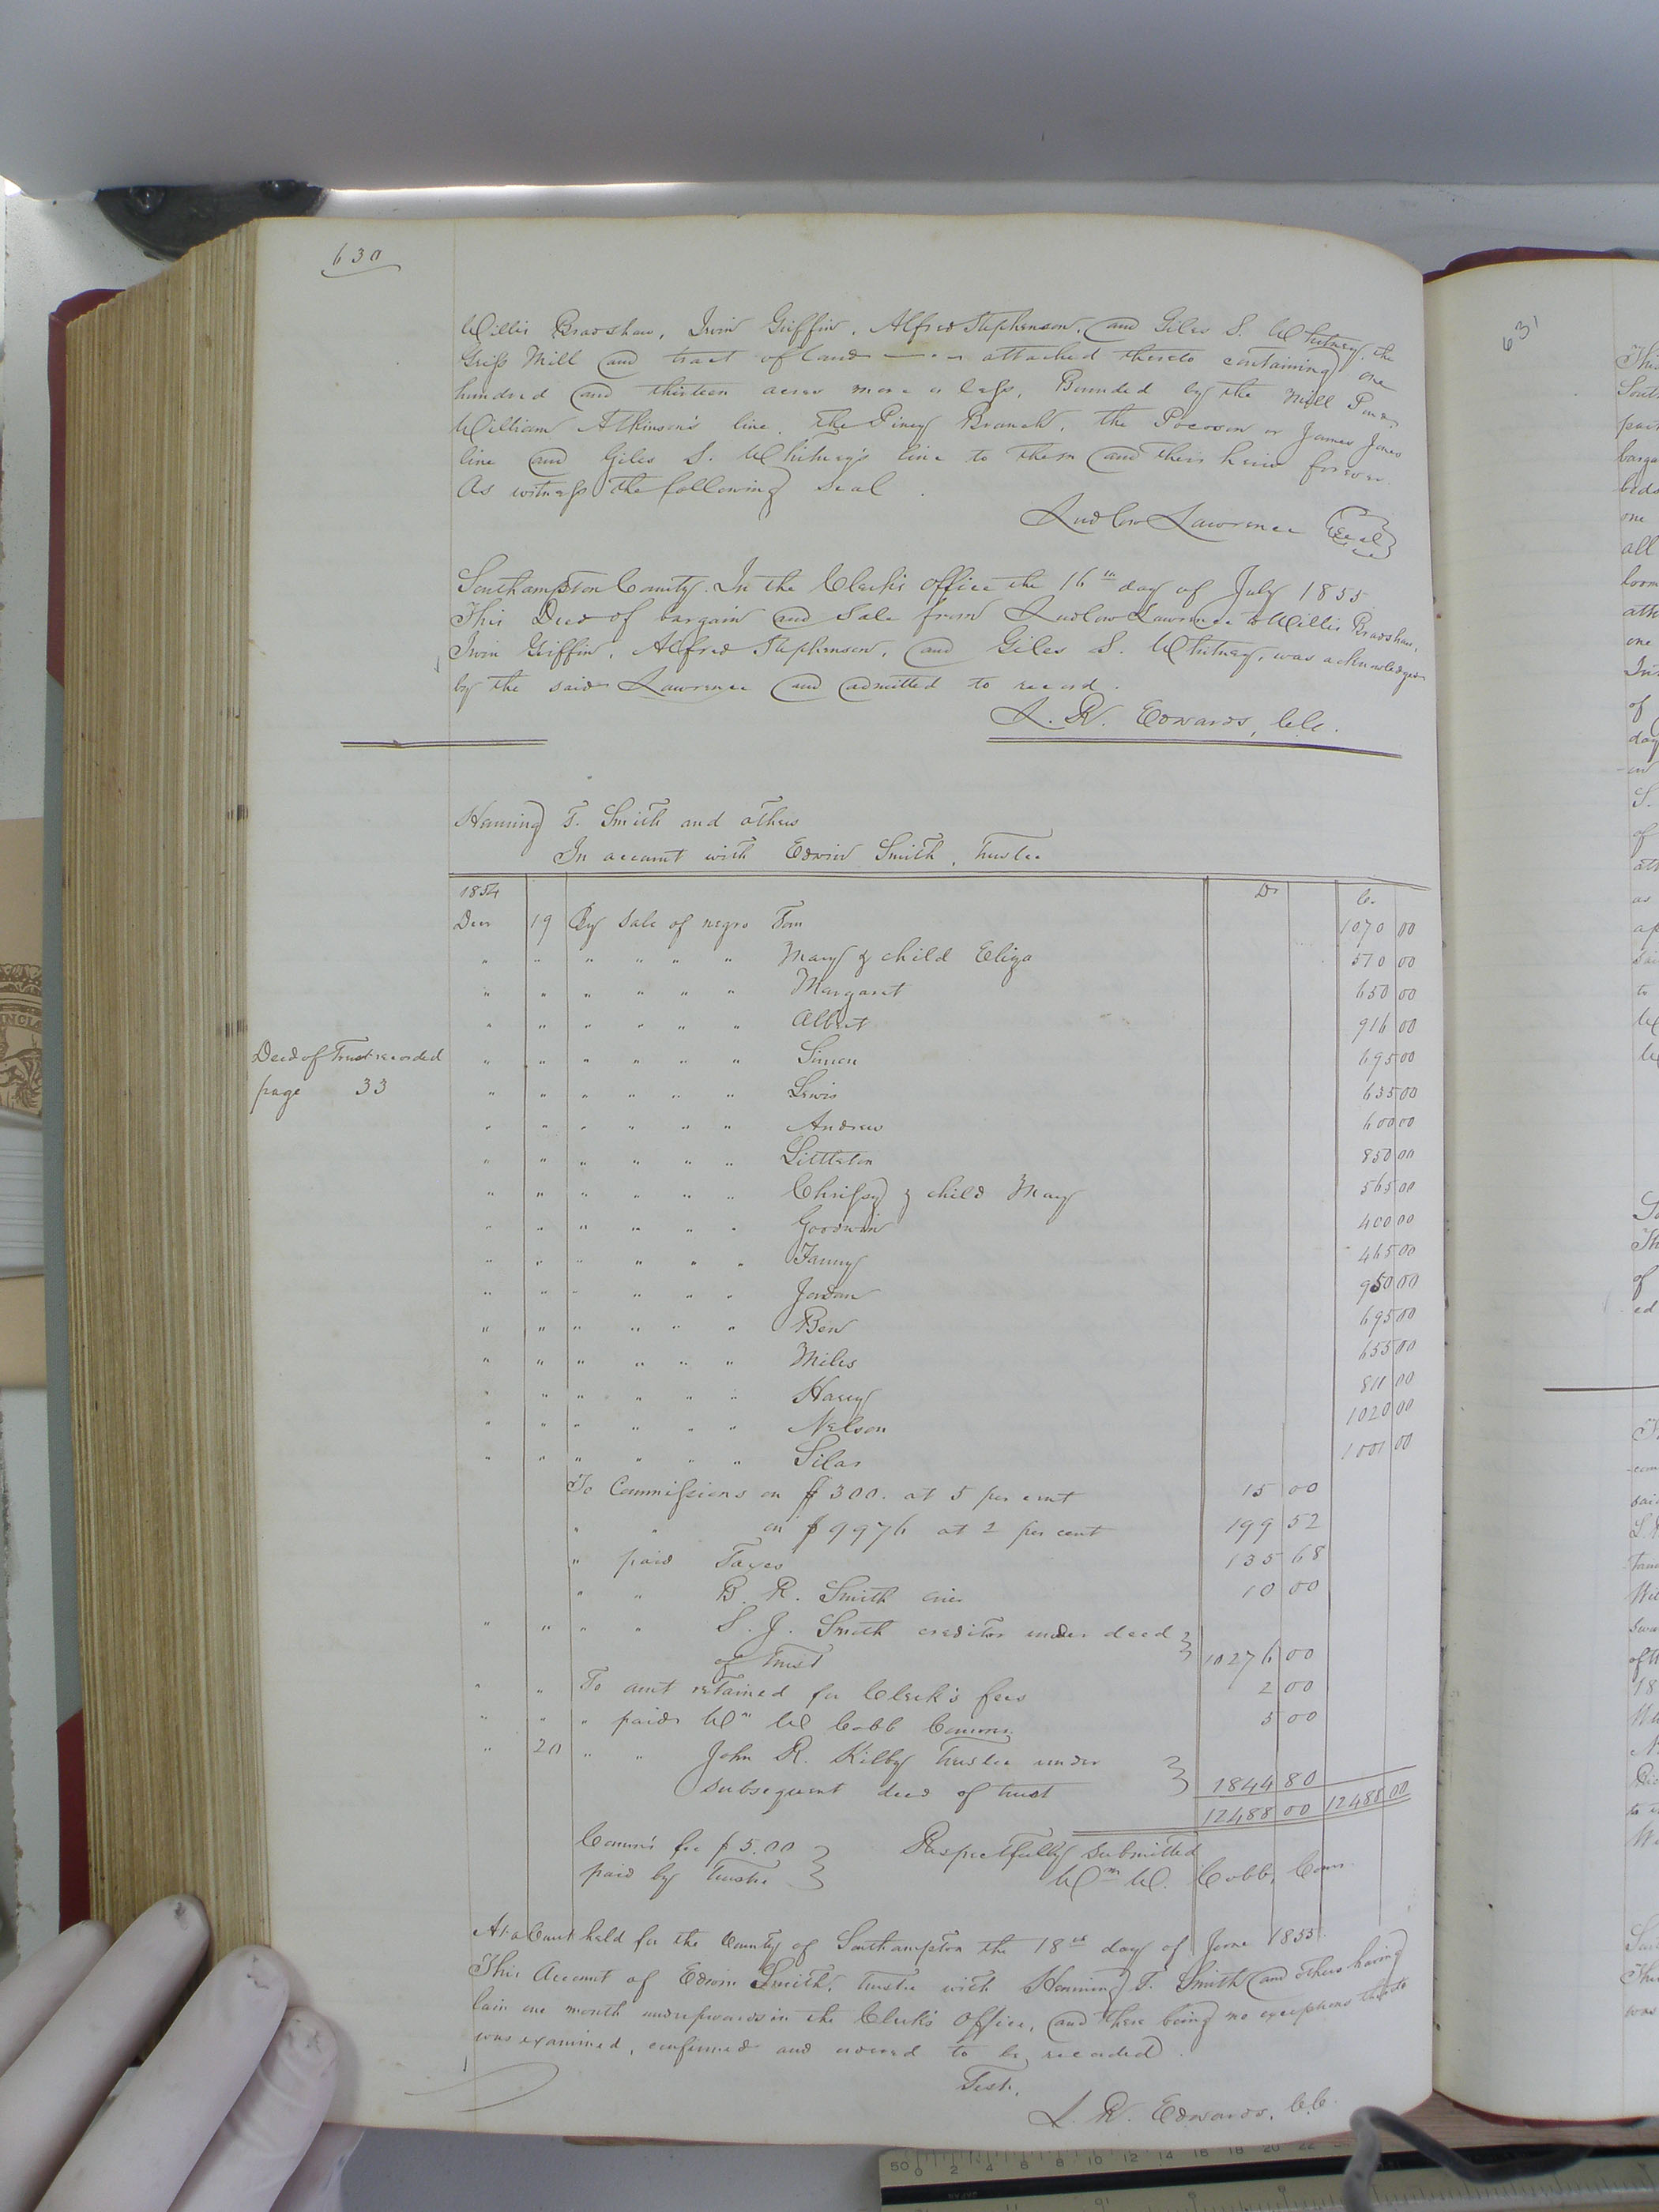 630
Willis Bradshaw, Irvin Griffin, Alfred Stephenson, and Giles S. Whitney, the
Grist Mill and tract of land attached thereto containing one
hundred and thirteen acres more or less, Bounded by the Mill Pond,
William Atkinson's line, the Piney Branch, the Pocoson or James Jones
line and Giles S. Whitney's line to them and their heirs forever.
As witness the following seal.
Ludlow Lawrence Seal
Southampton County. In the Clerk's Office the 16th day of July 1855
This Deed of bargain and Sale from Ludlow Lawrence to Willis Bradshaw,
Irvin Griffin, Alfred Stephenson, and Giles S. Whitney, was acknowledged
by the said Lawrence and admitted to record.
L. R. Edwards, C.C.
Henning T. Smith and others
In account with Edwin Smith, Trustee
1854 Dr Cr
Decr 19 By Sale of negro Tom 1070 00
" " " " " " Mary & child Eliza 570 00
" " " " " " Margaret 650 00
" " " " " " Albert 916 00
Deed of Trust recorded
page 33
" " " " " " Simon 695 00
" " " " " " Lewis 635 00
" " " " " " Andrew 600 00
" " " " " " Littleton 850 00
" " " " " " Chrissy & child Mary 565 00
" " " " " " Goodwin 400 00
" " " " " " Fanny 465 00
" " " " " " Jordan 950 00
" " " " " " Ben 695 00
" " " " " " Miles 655 00
" " " " " " Harry 811 00
" " " " " " Nelson 1020 00
" " " " " " Silas 1001 00
To Commissions on $300. at 5 per cent 15 00
" " on $9976 at 2 per cent 199 52
" paid Taxes 135 68
" " B. R. Smith crier 10 00
" " " " S. J. Smith creditor under deed
of trust 10276 00
" " To amt retained for Clerk's fees 2 00
" " " paid Wm W Cobb Commr 5 00
" 20 " " John R. Kilby Trustee under
subsequent deed of trust 1844 80
12488 00 12488 00
Comm's fee $5.00
paid by Trustee
Respectfully submitted
Wm W. Cobb, Comr.
At a Court held for the County of Southampton the 18th day of June 1855.
This Account of Edwin Smith, Trustee with Henning T. Smith and others having
lain one month and upwards in the Clerk's Office, and there being no exceptions thereto
was examined, confirmed and ordered to be recorded.
Test.
L. R. Edwards, C.C.
631